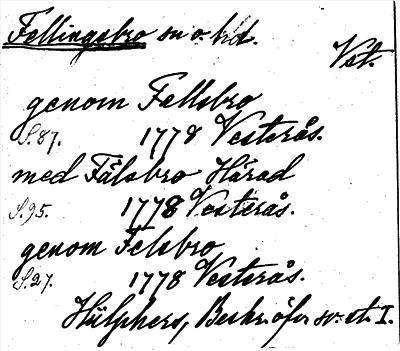 Fellingsbro sn o. hd.
Vst.
genom Fellsbro
S.87. 1778 Vesterås.
med Fälsbro Härad
S.95. 1778 Vesterås.
genom Felsbro
S.27. 1778 Vesterås.
Hülphers, Beskr. öfver sv. st. I.